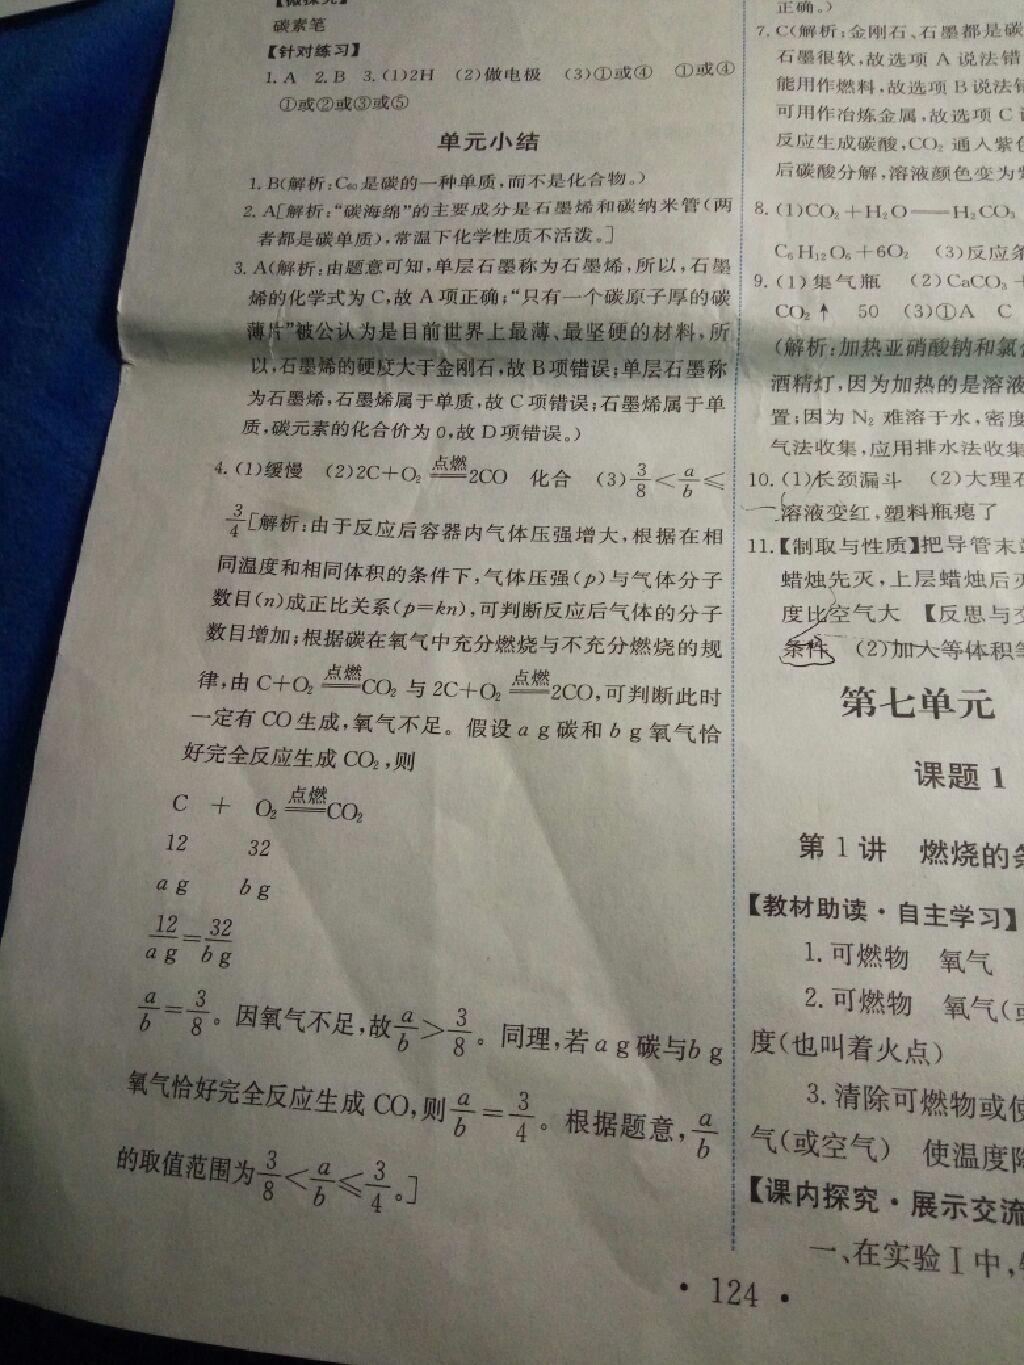 碳素笔
【针对练习】
1. A 2. B 3. (1)2H (2)做电极 (3)①或④ ①或④
①或②或③或⑤
单元小结
1. B(解析:C₆₀是碳的一种单质,而不是化合物。)
2. A[解析:“碳海绵”的主要成分是石墨烯和碳纳米管(两
者都是碳单质),常温下化学性质不活泼。]
3. A(解析:由题意可知,单层石墨称为石墨烯,所以,石墨
烯的化学式为 C,故 A 项正确;“只有一个碳原子厚的碳
薄片”被公认为是目前世界上最薄、最坚硬的材料,所
以,石墨烯的硬度大于金刚石,故 B项错误;单层石墨称
为石墨烯,石墨烯属于单质,故 C 项错误;石墨烯属于单
质,碳元素的化合价为 0,故 D 项错误。)
4. (1)缓慢 (2)2C+O₂ 点燃══ 2CO 化合 (3) 3/8 < a/b ≤
3/4 [解析:由于反应后容器内气体压强增大,根据在相
同温度和相同体积的条件下,气体压强(p)与气体分子
数目(n)成正比关系(p=kn),可判断反应后气体的分子
数目增加;根据碳在氧气中充分燃烧与不充分燃烧的规
律,由 C+O₂ 点燃══ CO₂ 与 2C+O₂ 点燃══ 2CO,可判断此时
一定有 CO 生成,氧气不足。假设 a g 碳和 b g 氧气恰
好完全反应生成 CO₂,则
C + O₂ 点燃══ CO₂
12 32
a g b g
12/a g = 32/b g
a/b = 3/8。因氧气不足,故 a/b > 3/8。同理,若 a g 碳与 b g
氧气恰好完全反应生成 CO,则 a/b = 3/4。根据题意, a/b
的取值范围为 3/8 < a/b ≤ 3/4。]
正确。)
7. C(解析:金刚石、石墨都是碳
石墨很软,故选项 A 说法错
能用作燃料,故选项 B 说法错
可用作冶炼金属,故选项 C
反应生成碳酸,CO₂ 通入紫色
后碳酸分解,溶液颜色变为紫
8. (1)CO₂+H₂O══H₂CO₃
C₆H₁₂O₆+6O₂ (3)反应条
9. (1)集气瓶 (2)CaCO₃+
CO₂↑ 50 (3)①A C
(解析:加热亚硝酸钠和氯
酒精灯,因为加热的是溶液
置;因为 N₂ 难溶于水,密度
气法收集,应用排水法收集
10. (1)长颈漏斗 (2)大理石
溶液变红,塑料瓶瘪了
11.【制取与性质】把导管末
蜡烛先灭,上层蜡烛后灭
度比空气大 【反思与交
条件 (2)加入等体积等
第七单元
课题 1
第 1 讲 燃烧的条
【教材助读·自主学习】
1. 可燃物 氧气
2. 可燃物 氧气(或
度(也叫着火点)
3. 清除可燃物或使
气(或空气) 使温度降
【课内探究·展示交流
一、在实验Ⅰ中,
· 124 ·